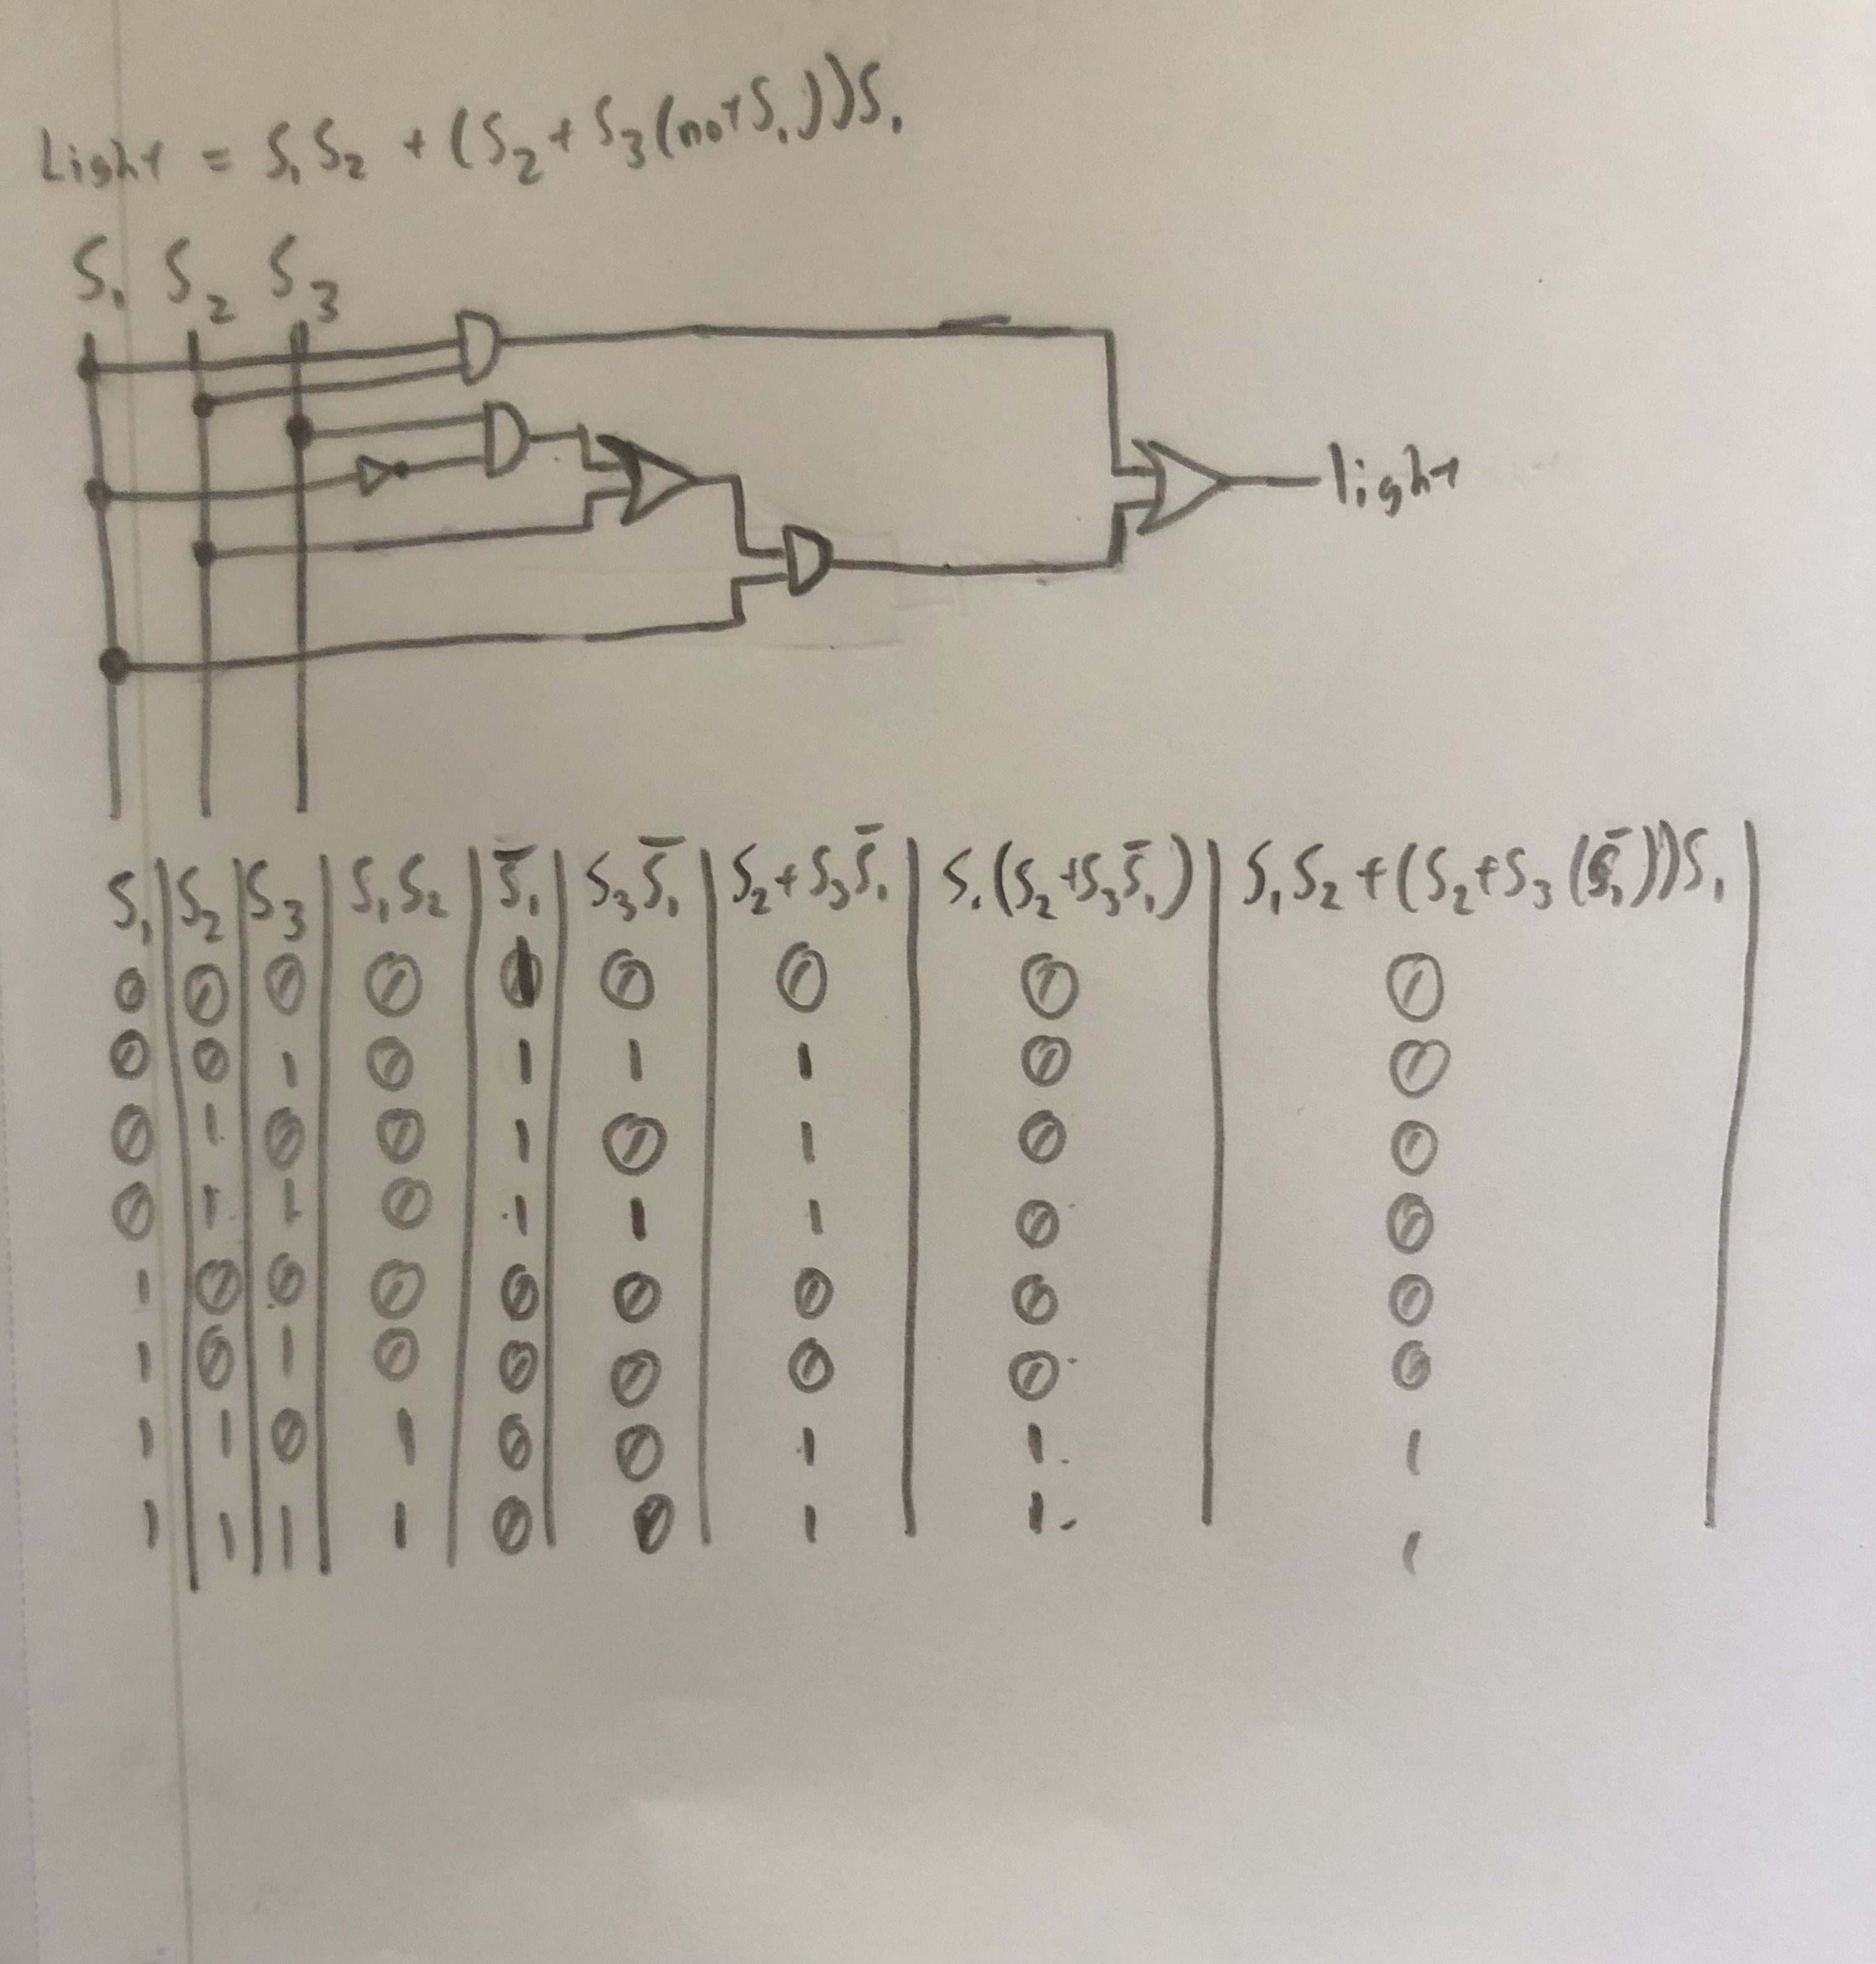 Light = S₁S₂ + (S₂ + S₃(not S₁))S₁
S₁ S₂ S₃
light
S₁ | S₂ | S₃ | S₁S₂ | S̅₁ | S₃S̅₁ | S₂+S₃S̅₁ | S₁(S₂+S₃S̅₁) | S₁S₂+(S₂+S₃(S̅₁))S₁ |
0 0 0 0 1 0 0 0 0
0 0 1 0 1 1 1 0 0
0 1 0 0 1 0 1 0 0
0 1 1 0 1 1 1 0 0
1 0 0 0 0 0 0 0 0
1 0 1 0 0 0 0 0 0
1 1 0 1 0 0 1 1 1
1 1 1 1 0 0 1 1 1